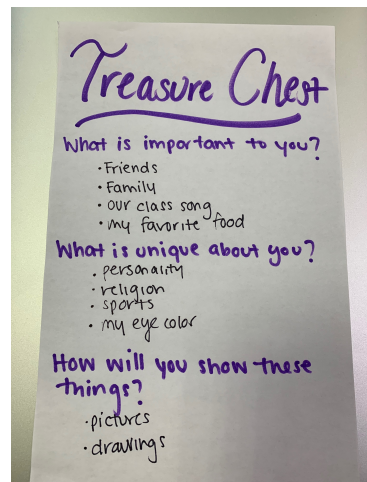 Treasure Chest
What is important to you?
• Friends
• Family
• our class song
• my favorite food
What is unique about you?
• personality
• religion
• sports
• my eye color
How will you show these
things?
• pictures
• drawings